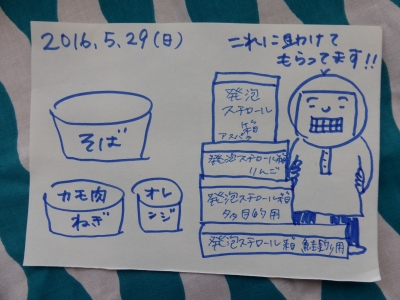 2016.5.29(日)
これに助けて
もらってます!!
そば
カモ肉
ねぎ
オレ
ンジ
発泡
スチロール
箱
アスパラ
発泡スチロール箱
りんご
発泡スチロール箱
多目的用
発泡スチロール箱 鮭釣り用